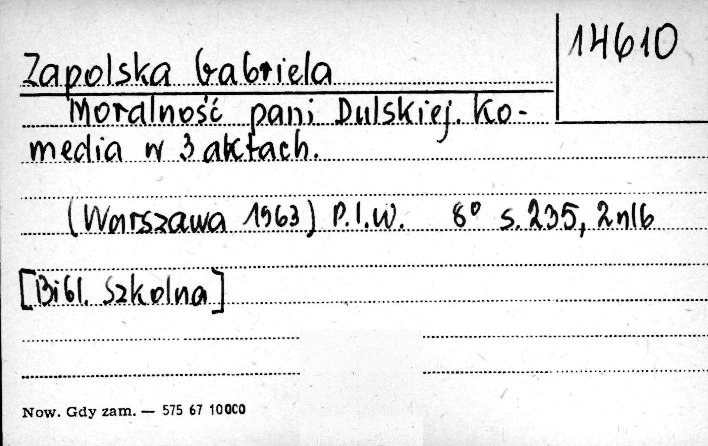 14610
Zapolska Gabriela
Moralność pani Dulskiej. Ko-
media w 3 aktach.
(Warszawa 1963) P.I.W. 8° s. 235, 2 nlb
[Bibl. Szkolna]
Now. Gdy zam. — 575 67 10000